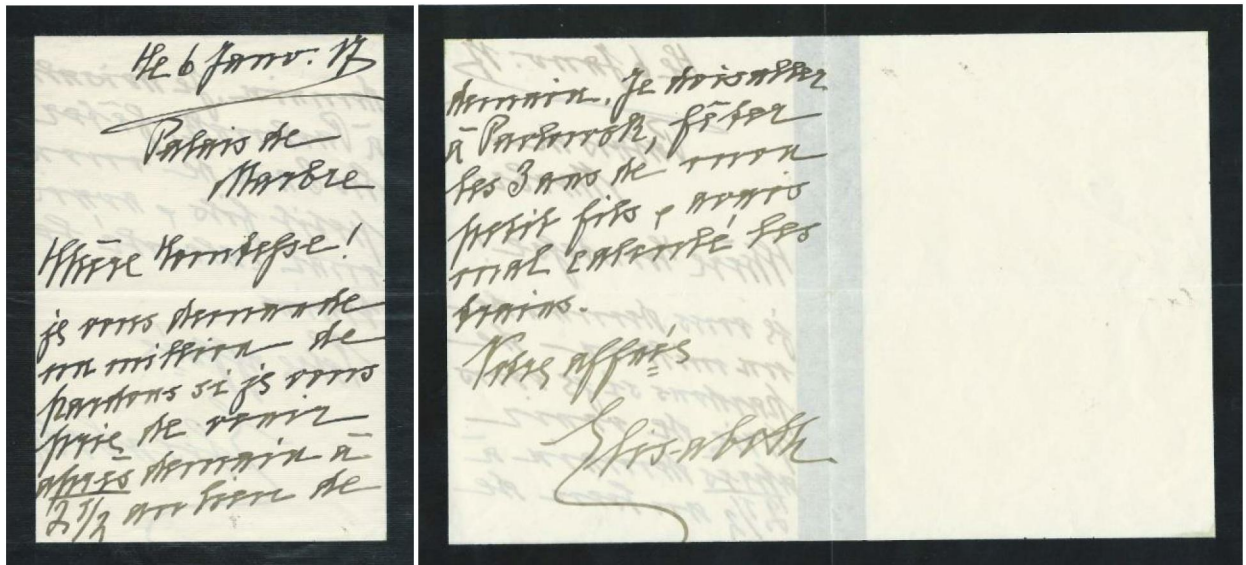 le 6 Janv. 17
Palais de
Marbre
Chère Comtesse!
je vous demande
un million de
pardons si je vous
prie de venir
après demain à
2 1/2 au lieu de
demain. Je dois aller
à Pavlovsk, fêter
les 3 ans de mon
petit fils, avais
mal calculé les
trains.
Votre affnée
Elisabeth